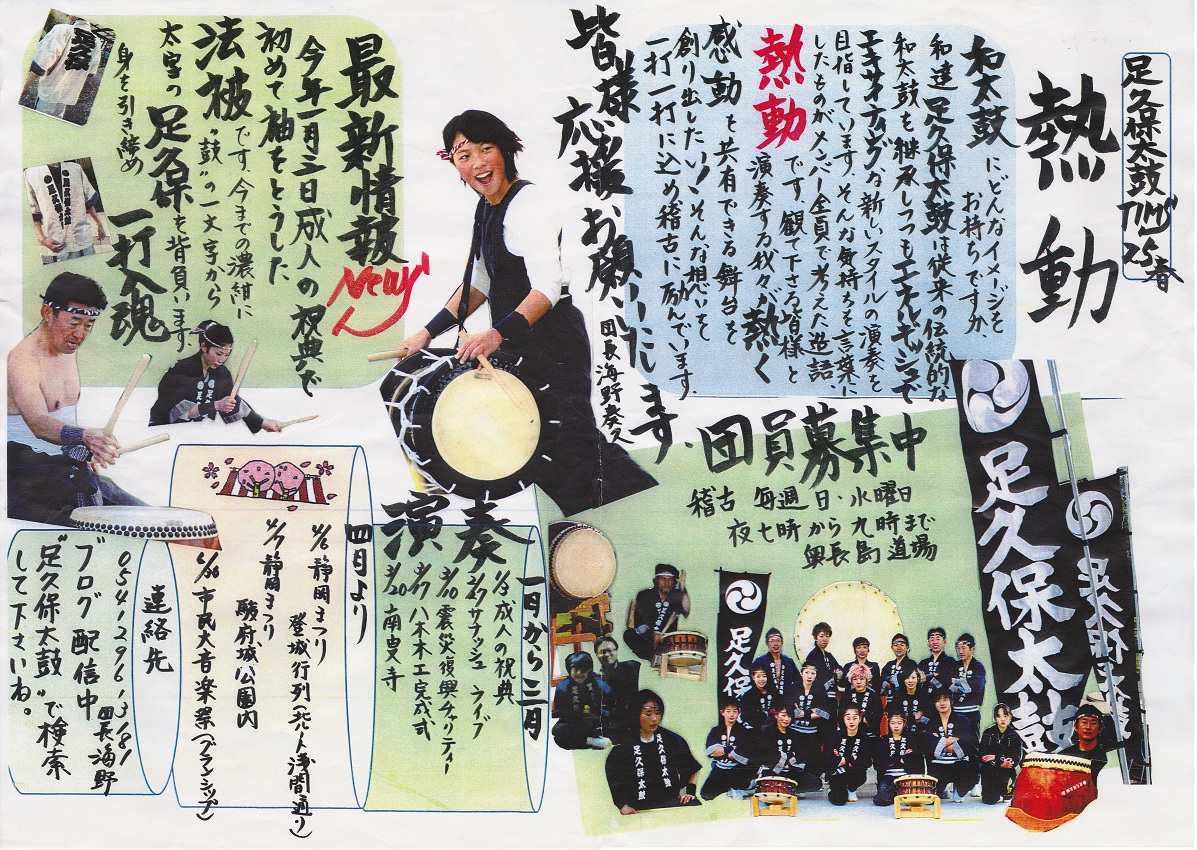 足久保太鼓TIMS
25春
熱動
和太鼓にどんなイメージを
お持ちですか、
和達足久保太鼓は従来の伝統的な
和太鼓を継承しつつもエネルギッシュで
エキサイティングな新しいスタイルの演奏を
目指しています。そんな気持ちを言葉に
したものがメンバー全員で考えた造語
熱動です。観て下さる皆様と
演奏する我々が熱く
感動を共有できる舞台を
創り出したい!そんな想いを
一打一打に込め稽古に励んでいます。
皆様、応援お願いいたします。
団長海野泰久
最新情報
New!
今年一月三日成人の祝典で
初めて袖をとうした
法被です。今までの濃紺に
"鼓"の一文字から
太字の足久保を背負います。
身を引き締め
一打入魂
団員募集中
稽古 毎週 日・水曜日
夜七時から九時まで
奥長島道場
足久保太鼓
足久保
足久保太鼓
演奏
一月から三月
1/3成人の祝典
2/27サナッシュライブ
3/10震災復興チャリティー
3/17八木木工完成式
3/20南叟寺
四月より
4/6静岡まつり
登城行列(北ハト浅間通り)
4/7静岡まつり
駿府城公園内
6/30市民大音楽祭(グランシップ)
連絡先
054・296・3181
団長海野
ブログ配信中
"足久保太鼓"で検索
して下さいね。